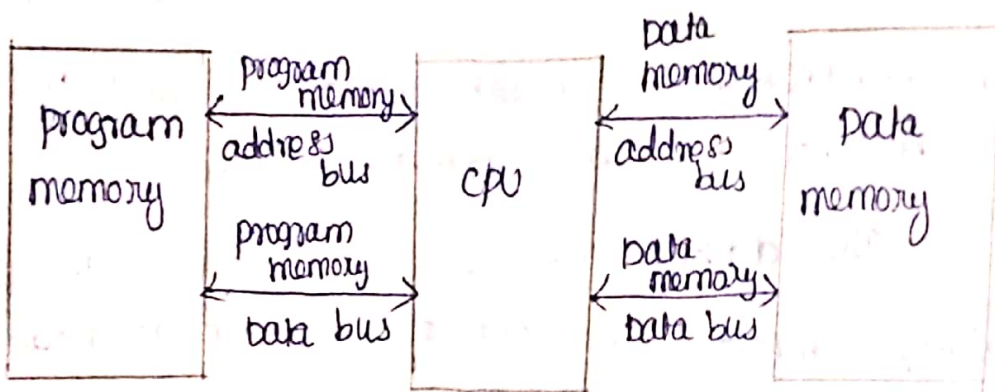 program
memory
program
memory
address
bus
program
memory
Data bus
CPU
Data
memory
address
bus
Data
memory
Data bus
Data
memory